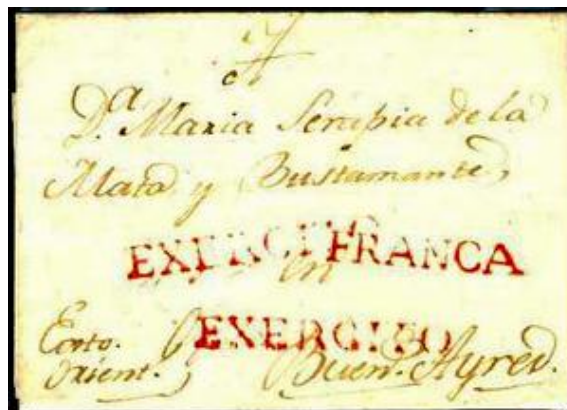 A
D.ª Maria Serapia de la
Mata y Bustamante,
EXERCITO FRANCA
en
EXERCITO
Exto.
Orient.
Buen.s Ayres.